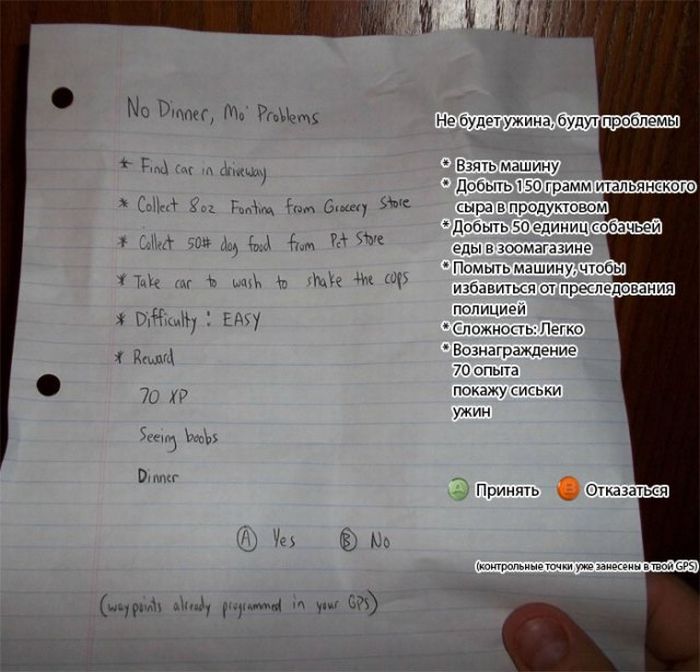 No Dinner, Mo' Problems
Не будет ужина, будут проблемы
* Find car in driveway
* Collect 8oz Fontina from Grocery Store
* Collect 50# dog food from Pet Store
* Take car to wash to shake the cops
* Difficulty : EASY
* Reward
70 XP
Seeing boobs
Dinner
* Взять машину
* Добыть 150 грамм итальянского
сыра в продуктовом
* Добыть 50 единиц собачьей
еды в зоомагазине
* Помыть машину, чтобы
избавиться от преследования
полицией
* Сложность: Легко
* Вознаграждение
70 опыта
покажу сиськи
ужин
A Yes B No
A Принять B Отказаться
(waypoints already programmed in your GPS)
(контрольные точки уже занесены в твой GPS)